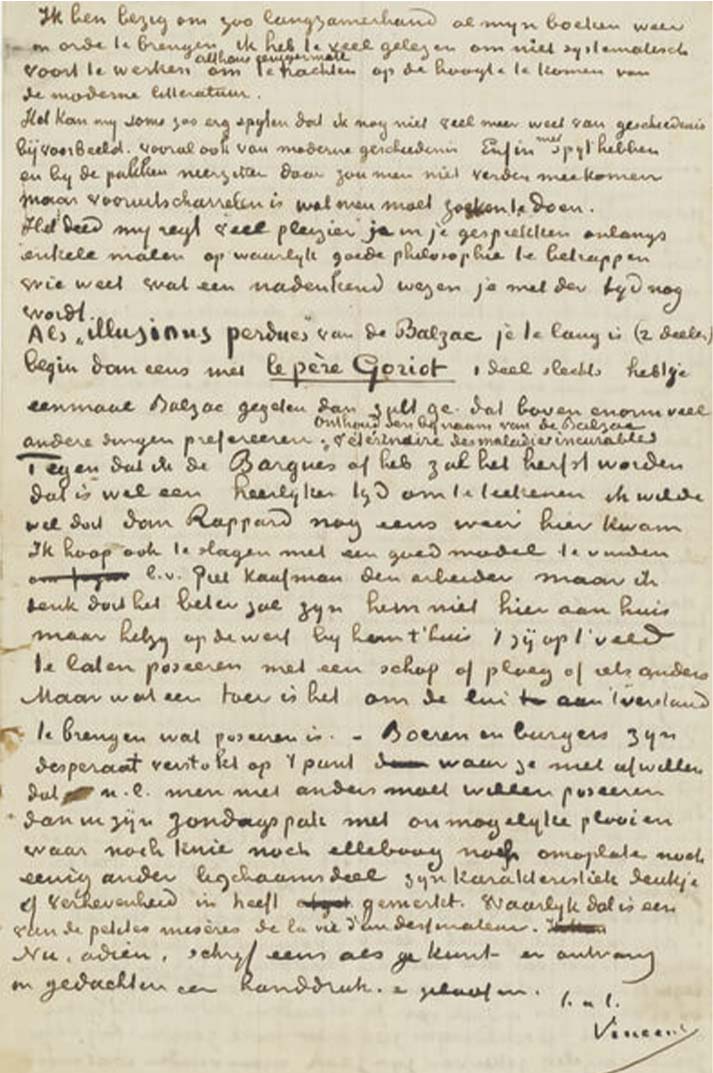 Ik ben bezig om zoo langzamerhand al mijn boeken weer
in orde te brengen, ik heb te veel gelezen om niet systematisch
voort te werken om te trachten althans eenigermate op de hoogte te komen van
de moderne litteratuur.
Het kan mij soms zoo erg spijten dat ik nog niet veel meer weet van geschiedenis
bijvoorbeeld. vooral ook van moderne geschiedenis Enfin met spijt hebben
en bij de pakken neerzitten daar zou men niet verder mee komen
maar vooruitscharrelen is wat men moet zoeken te doen.
Het deed mij regt veel pleizier je in je gesprekken onlangs
enkele malen op waarlijk goede philosophie te betrappen
wie weet wat een nadenkend wezen je met der tijd nog
wordt.
Als „illusions perdues” van de Balzac je te lang is (2 deelen)
begin dan eens met le père Goriot 1 deel slechts hebt je
eenmaal Balzac gegeten dan zult ge dat boven enorm veel
andere dingen prefereeren. Onthoud den bijnaam van de Balzac
„vétérinaire des maladies incurables
Tegen dat ik de Bargues af heb zal het herfst worden
dat is wel een heerlijken tijd om te teekenen ik wilde
wel dat dan Rappard nog eens weer hier kwam
Ik hoop ook te slagen met een goed model te vinden
b.v. Piet Kaufman den arbeider maar ik
denk dat het beter zal zijn hem niet hier aan huis
maar hetzij op de werf bij hem t'huis 't zij op 't veld
te laten poseeren met een schop of ploeg of iets anders
Maar wat een toer is het om de lui aan 't verstand
te brengen wat poseeren is. – Boeren en burgers zijn
desperaat verstokt op 't punt waar ze niet af willen
dat n.l. men niet anders moet willen poseeren
dan in zijn zondagspak met onmogelijke plooien
waar noch knie noch elleboog noch omoplate noch
eenig ander ligchaamsdeel zijn karakteristiek deukje
of verhevenheid in heeft gemerkt. Waarlijk dat is een
van de petites misères de la vie d'un dessinateur.
Nu, adieu, schrijf eens als ge kunt en ontvang
in gedachten een handdruk. & geloof m.
t. à t.
Vincent